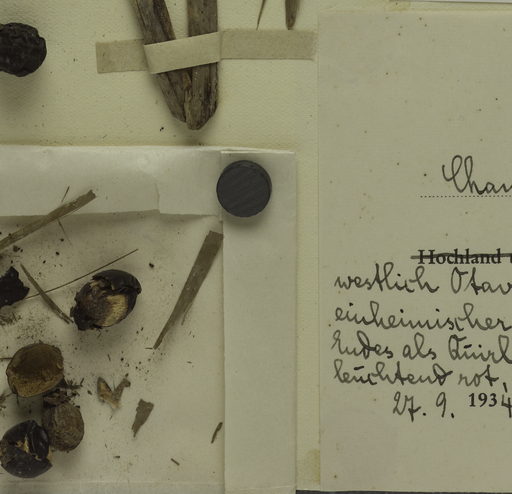 Cham
Hochland
westlich Otav
einheimischer
Endes als Quirl
leuchtend rot,
27. 9. 1934